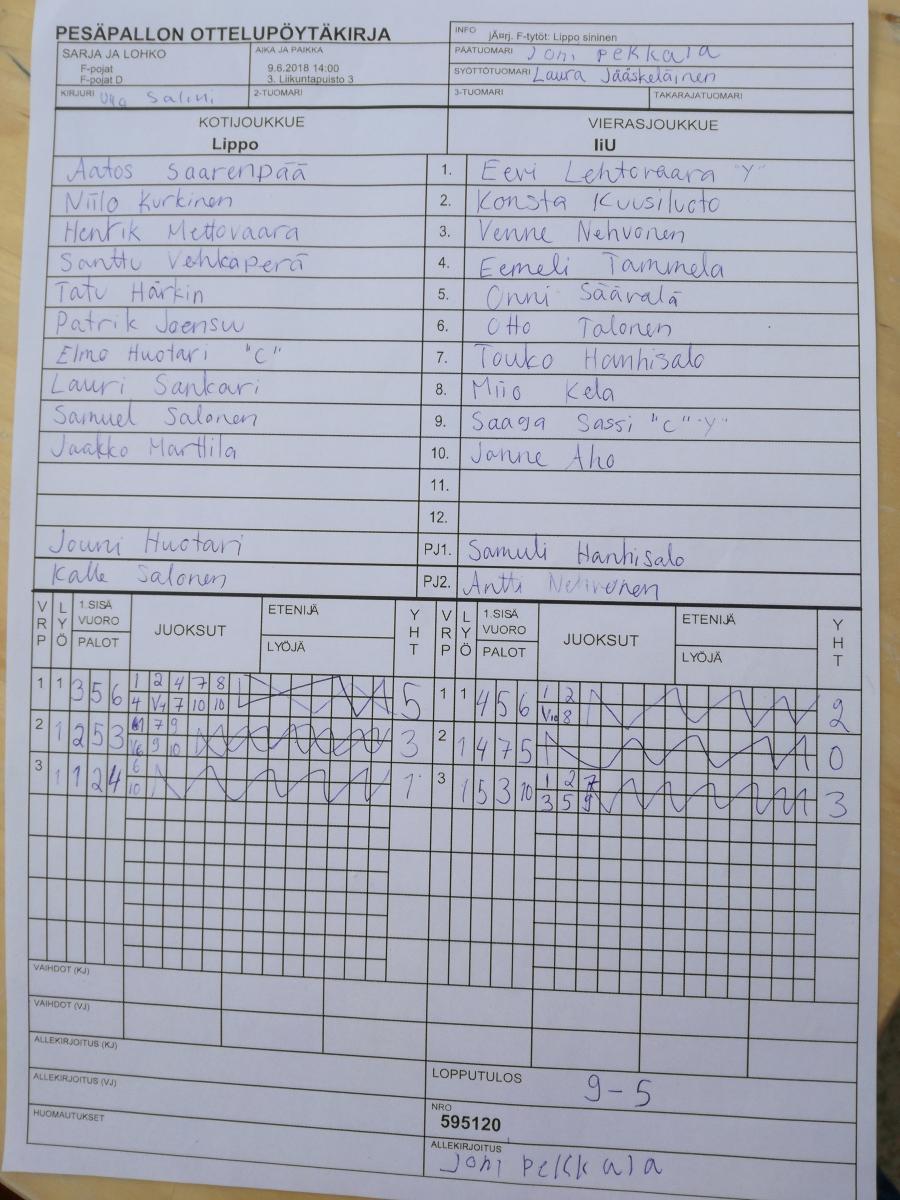 PESÄPALLON OTTELUPÖYTÄKIRJA
INFO jÃ¤rj. F-tytöt: Lippo sininen
SARJA JA LOHKO
F-pojat
F-pojat D
AIKA JA PAIKKA
9.6.2018 14:00
3. Liikuntapuisto 3
PÄÄTUOMARI Joni Pekkala
SYÖTTÖTUOMARI Laura Jääskeläinen
KIRJURI Salmi
2-TUOMARI
3-TUOMARI
TAKARAJATUOMARI
KOTIJOUKKUE VIERASJOUKKUE
Lippo IiU
Aatos Saarenpää 1. Eevi Lehtovaara "Y"
Niilo Kurkinen 2. Konsta Kuusiluoto
Henrik Mettovaara 3. Venne Nehvonen
Santtu Vehkaperä 4. Eemeli Tammela
Tatu Härkin 5. Onni Säävälä
Patrik Joensuu 6. Otto Talonen
Elmo Huotari "C" 7. Touko Hanhisalo
Lauri Sankari 8. Miio Kela
Samuel Salonen 9. Saaga Sassi "C" "Y"
Jaakko Marttila 10. Janne Aho
11.
12.
Jouni Huotari PJ1. Samuli Hanhisalo
Kalle Salonen PJ2. Antti Nehvonen
VRP LYÖ 1.SISÄ VUORO PALOT JUOKSUT ETENIJÄ LYÖJÄ YHT VRP LYÖ 1.SISÄ VUORO PALOT JUOKSUT ETENIJÄ LYÖJÄ YHT
1 1 3 5 6 1 2 4 7 8 5 1 1 4 5 6 1 2 2
4 V4 7 10 10 V10 8
2 1 2 5 3 7 9 3 2 1 4 7 5 0
V6 9 10
3 1 1 2 4 6 1 3 1 5 3 10 1 2 7 3
10 3 5 9
VAIHDOT (KJ)
VAIHDOT (VJ)
ALLEKIRJOITUS (KJ)
ALLEKIRJOITUS (VJ)
HUOMAUTUKSET
LOPPUTULOS 9-5
NRO
595120
ALLEKIRJOITUS
Joni Pekkala